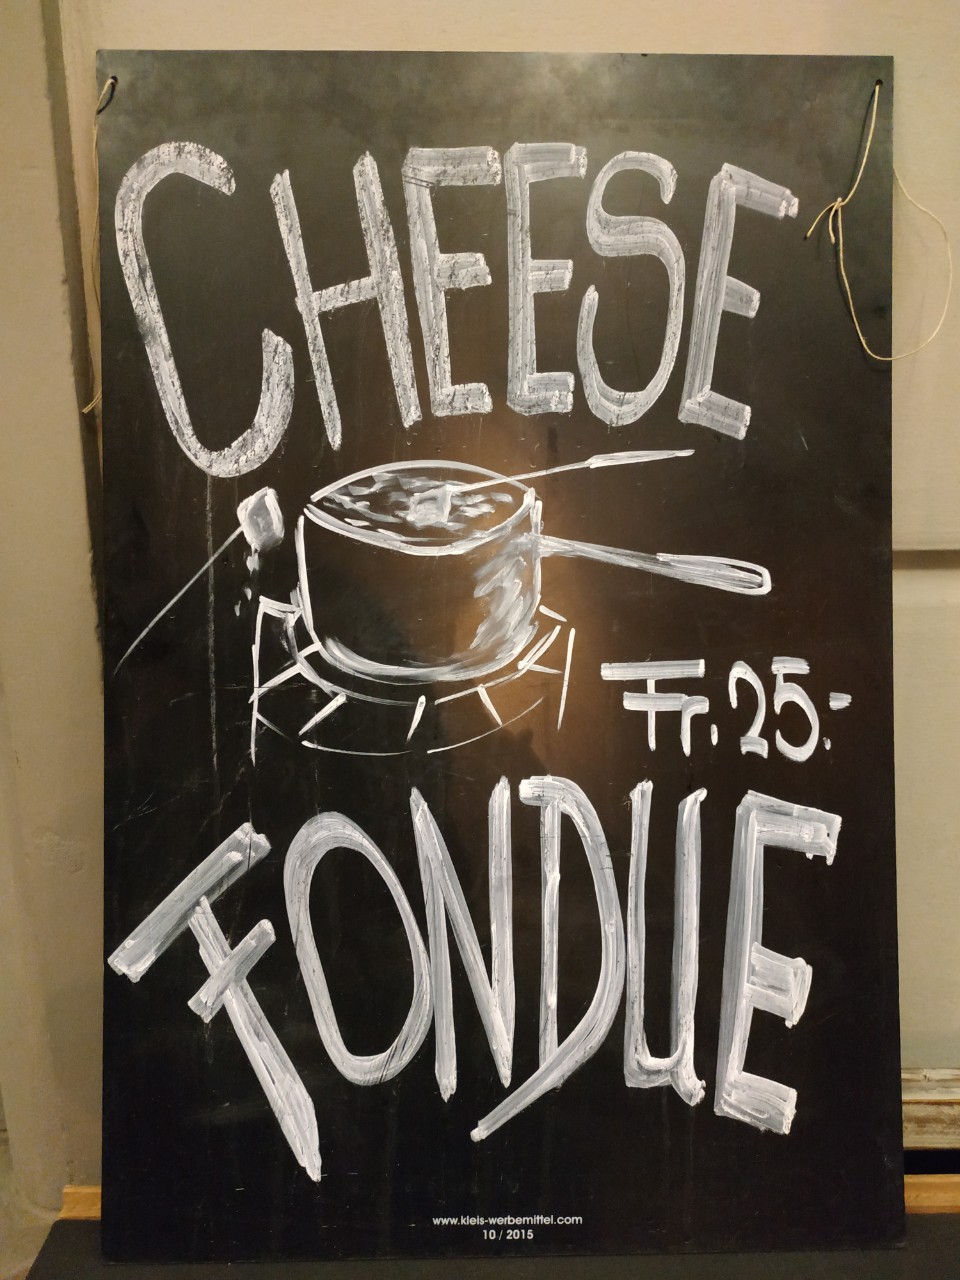 CHEESE
Fr. 25.-
FONDUE
www.kleis-werbemittel.com
10 / 2015